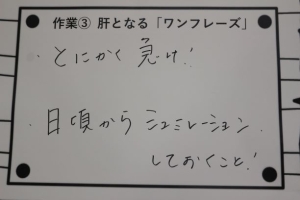 作業③ 肝となる「ワンフレーズ」
・とにかく急け!
・日頃からシュミレーション
しておくこと!